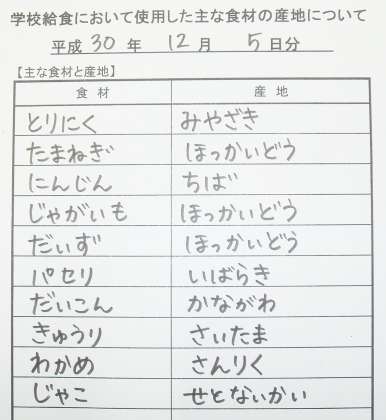 学校給食において使用した主な食材の産地について
平成 30 年 12 月 5 日分
【主な食材と産地】
食材 産地
とりにく みやざき
たまねぎ ほっかいどう
にんじん ちば
じゃがいも ほっかいどう
だいず ほっかいどう
パセリ いばらき
だいこん かながわ
きゅうり さいたま
わかめ さんりく
じゃこ せとないかい